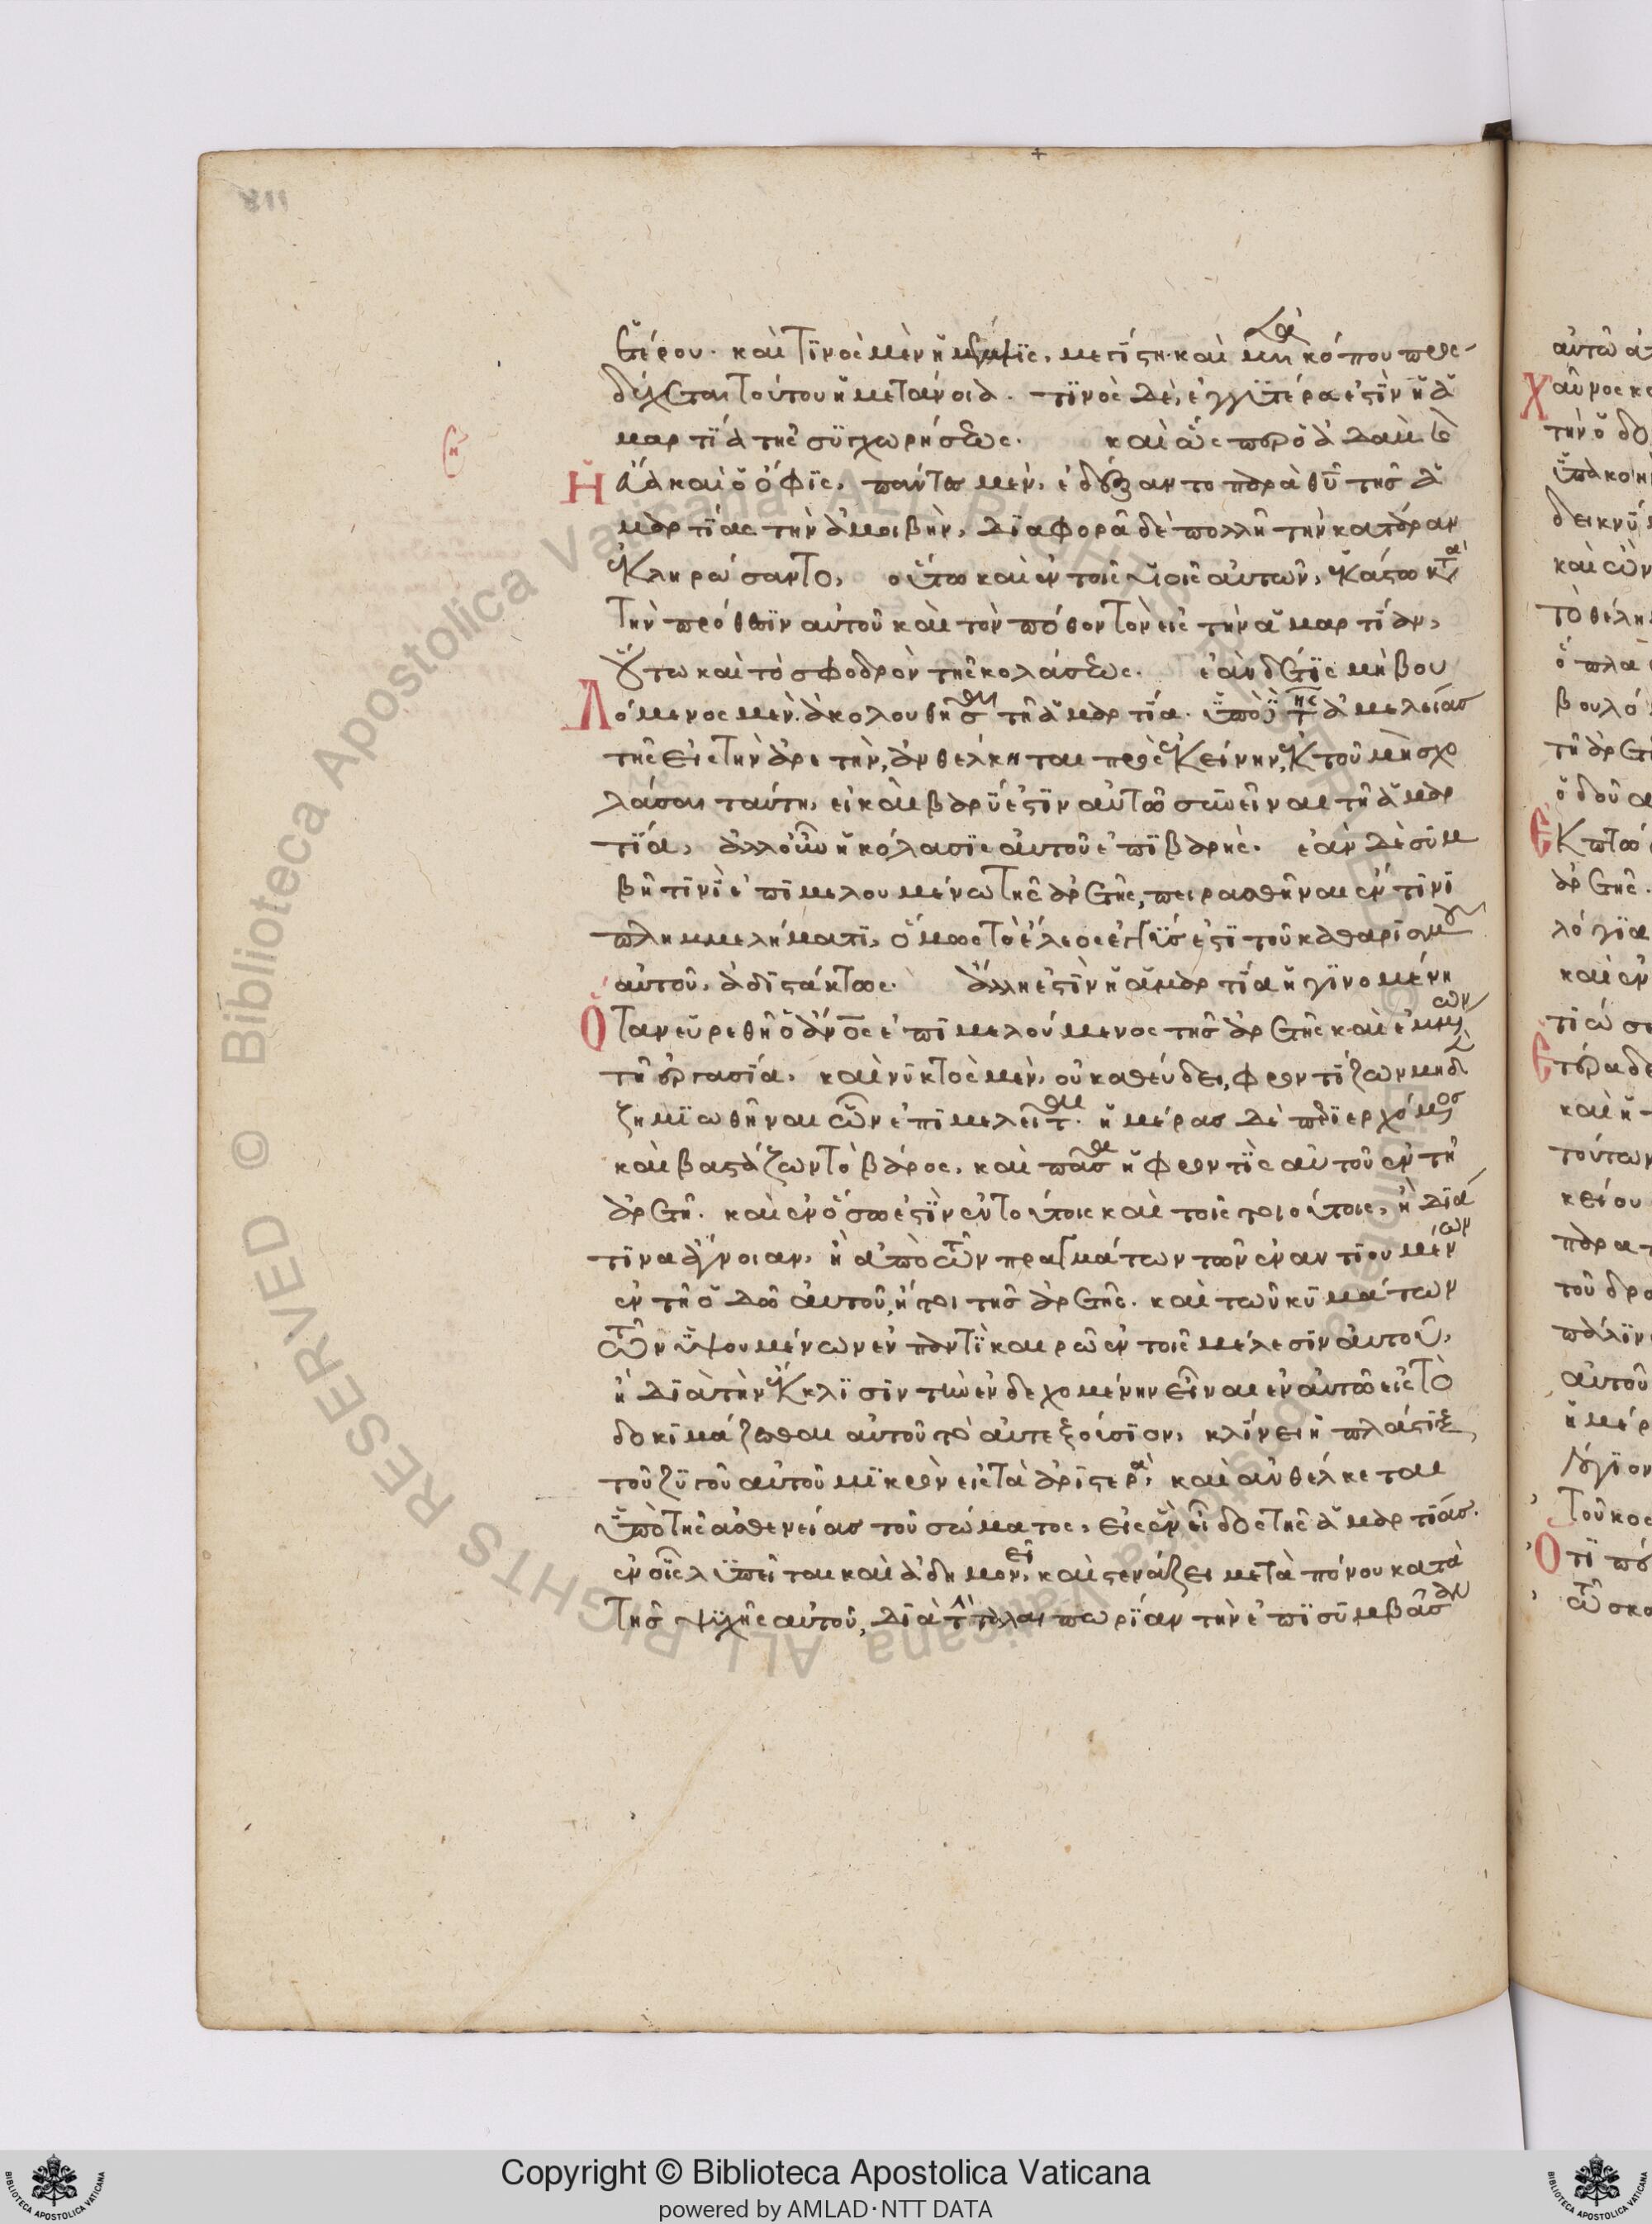 118
ἑτέρου. καὶ τινὸς μὲν ἡ μέμψις, μετίστη. καὶ μετὰ κόπου προσ
δέχεται τούτου ἡ μετάνοια. τινὸς δὲ, ἐγγυτέρα ἐστὶν ἡ ἁ
μαρτία τῆς συγχωρήσεως. καὶ ὥσπερ ὁ ἀδὰμ
ἡ ἕυα καὶ ὁ ὄφις, πάντα μὲν, ἐδέξαντο παρὰ θῦ τῆς ἁ
μαρτίας τὴν ἀμοιβὴν, διαφορᾶ δὲ πολλῆ τὴν κατάραν
ἐκληρώσαντο, οὕτω καὶ ἐν τοῖς υἱοῖς αὐτῶν, ἑκάστω κατὰ
τὴν πρόθεσιν αὐτοῦ καὶ τὸν πόθον τὸν εἰς τὴν ἁμαρτίαν,
οὕτω καὶ τὸ σφοδρὸν τῆς κολάσεως. ἐὰν δέ τις μὴ βου
λόμενος μὲν ἀκολουθῆσαι τῆ ἁμαρτία. ὑπὸ τῆς ἀμελείας
τῆς εἰς τὴν ἀρετὴν, ἀνθέλκηται πρὸς ἐκείνην, ἐκ τοῦ μὴ σχο
λάσαι ταύτη, εἰ καὶ βαρύ ἐστιν αὐτῶ συνεῖναι τῆ ἁμαρ
τία, ἀλλ' οὖν ἡ κόλασις αὐτοῦ ἐπιβαρής. ἐὰν δὲ συμ
βῆ τινὶ ἐπιμελουμένω τῆς ἀρετῆς, πειρασθῆναι ἐν τινὶ
πλημμελήματι, ὅμως τὸ ἔλεος ἐγγύς ἐστι τοῦ καθαρισμοῦ
αὐτοῦ, ἀδιστάκτως. ἄλλη ἐστὶν ἡ ἁμαρτία ἡ γινομένη
ὅταν εὑρεθῆ ὁ ἄνος ἐπιμελούμενος τῆς ἀρετῆς καὶ ἐμμένων
τῆ ἐργασία. καὶ νυκτὸς μὲν, οὐ καθεύδει, φροντίζων μηδὲ
ζημιωθῆναι ὧν ἐπιμελεῖται. ἡμέρας δὲ περιερχόμενος
καὶ βαστάζων τὸ βάρος, καὶ πᾶσα ἡ φροντὶς αὐτοῦ ἐν τῆ
ἀρετῆ. καὶ ἐν ὅσω ἐστὶν ἐν τούτοις καὶ τοῖς τοιούτοις, ἢ διά
τινα ἄγνοιαν, ἢ ἀπὸ τῶν πραγμάτων τῶν ἐναντιουμένων
ἐν τῆ ὁδῶ αὐτοῦ, ἤτοι τῆς ἀρετῆς. καὶ τῶν κυμάτων
τῶν ὑψουμένων ἐν παντὶ καιρῶ ἐν τοῖς μέλεσιν αὐτοῦ,
ἢ διὰ τὴν ἔκκλισιν τὴν ἐνδεχομένην εἶναι ἐν αὐτῶ εἰς τὸ
δοκιμάζεσθαι αὐτοῦ τὸ αὐτεξούσιον, κλίνει ἡ πλάστιξ
τοῦ ζυγοῦ αὐτοῦ μικρὸν εἰς τὰ ἀριστερὰ, καὶ ἀνθέλκεται
ὑπὸ τῆς ἀσθενείας τοῦ σώματος, εἰς ἓν εἶδος τῆς ἁμαρτίας.
ἐν οἷς λυπεῖται καὶ ἀδημονεῖ, καὶ στενάζει μετὰ πόνου κατὰ
τῆς ψυχῆς αὐτοῦ, διὰ τὴν ταλαιπωρίαν τὴν ἐπισυμβᾶσαν
Copyright © Biblioteca Apostolica Vaticana
powered by AMLAD·NTT DATA